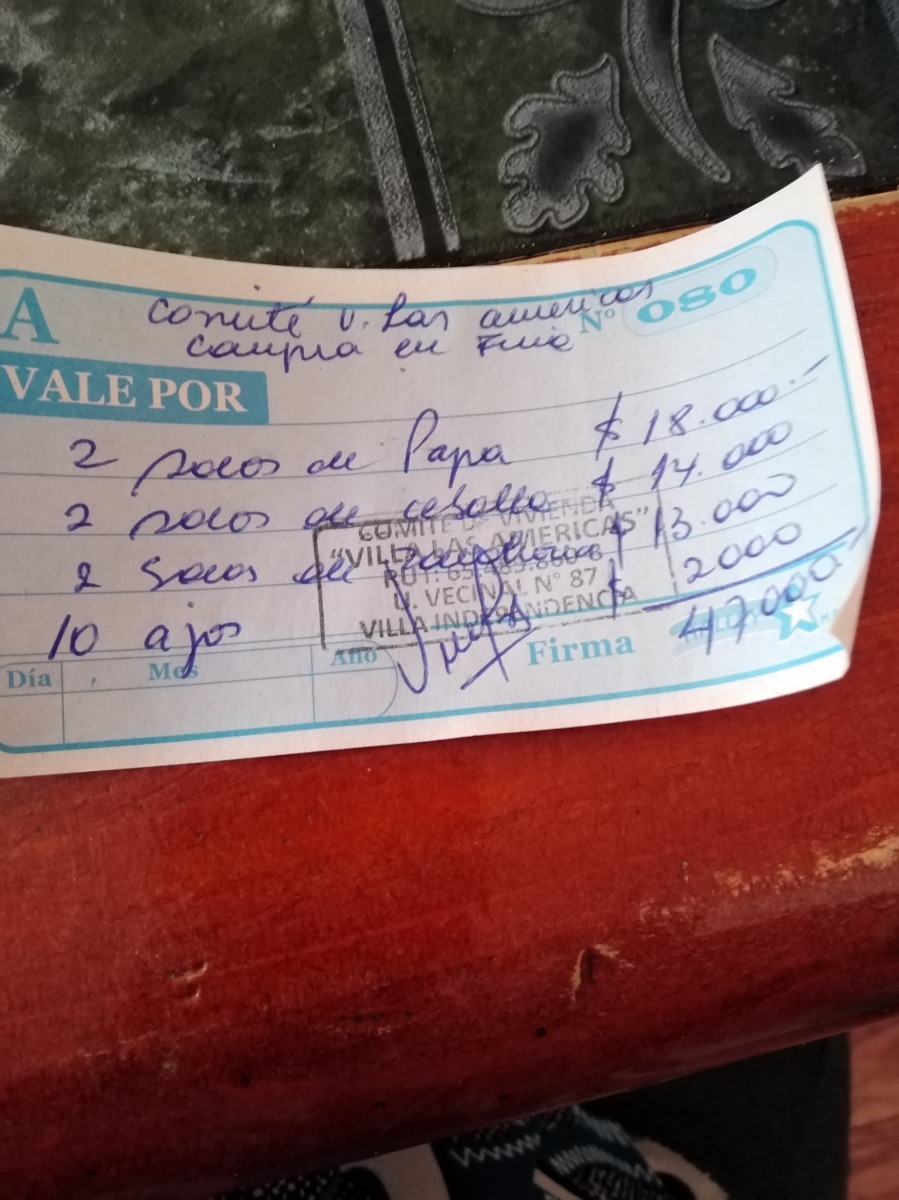 A
Comité V. Las americas
Nº 080
Compra en Feria
VALE POR
2 sacos de Papa $ 18.000.-
2 sacos de cebolla $ 14.000
2 sacos de zanahoria $ 13.000
10 ajos $ 2000
47.000
COMITE DE VIVIENDA
"VILLA LAS AMERICAS"
RUT:
U. VECINAL N° 87
VILLA INDEPENDENCIA
Día Mes Año Firma